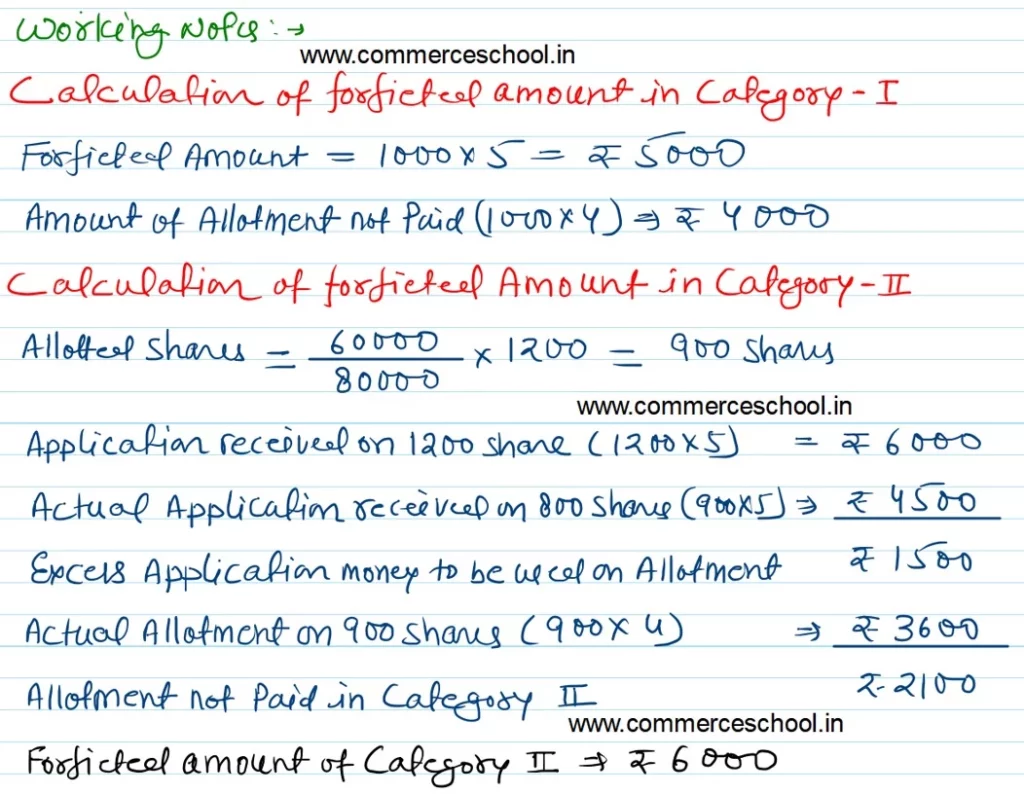 Working Notes : →
www.commerceschool.in
Calculation of forficted amount in Category - I
Forficted Amount = 1000 × 5 = ₹ 5000
Amount of Allotment not Paid (1000 × 4) ⇒ ₹ 4000
Calculation of forficted Amount in Category - II
Allotted Shares = 60000/80000 × 1200 = 900 Shares
www.commerceschool.in
Application received on 1200 share (1200×5) = ₹ 6000
Actual Application received on 800 Shares (900×5) ⇒ ₹ 4500
Excess Application money to be used on Allotment ₹ 1500
Actual Allotment on 900 Shares (900 × 4) ⇒ ₹ 3600
Allotment not Paid in Category II ₹ 2100
www.commerceschool.in
Forficted amount of Category II ⇒ ₹ 6000